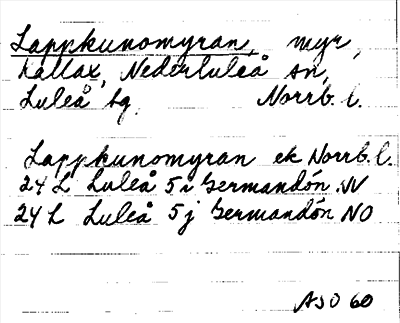 Lappkunomyran, myr,
Kallax, Nederluleå sn,
Luleå tg. Norrb. l.
Lappkunomyran ek Norrb. l.
24 L Luleå 5 i Germandön NV
24 L Luleå 5 j Germandön NO
ASO 60